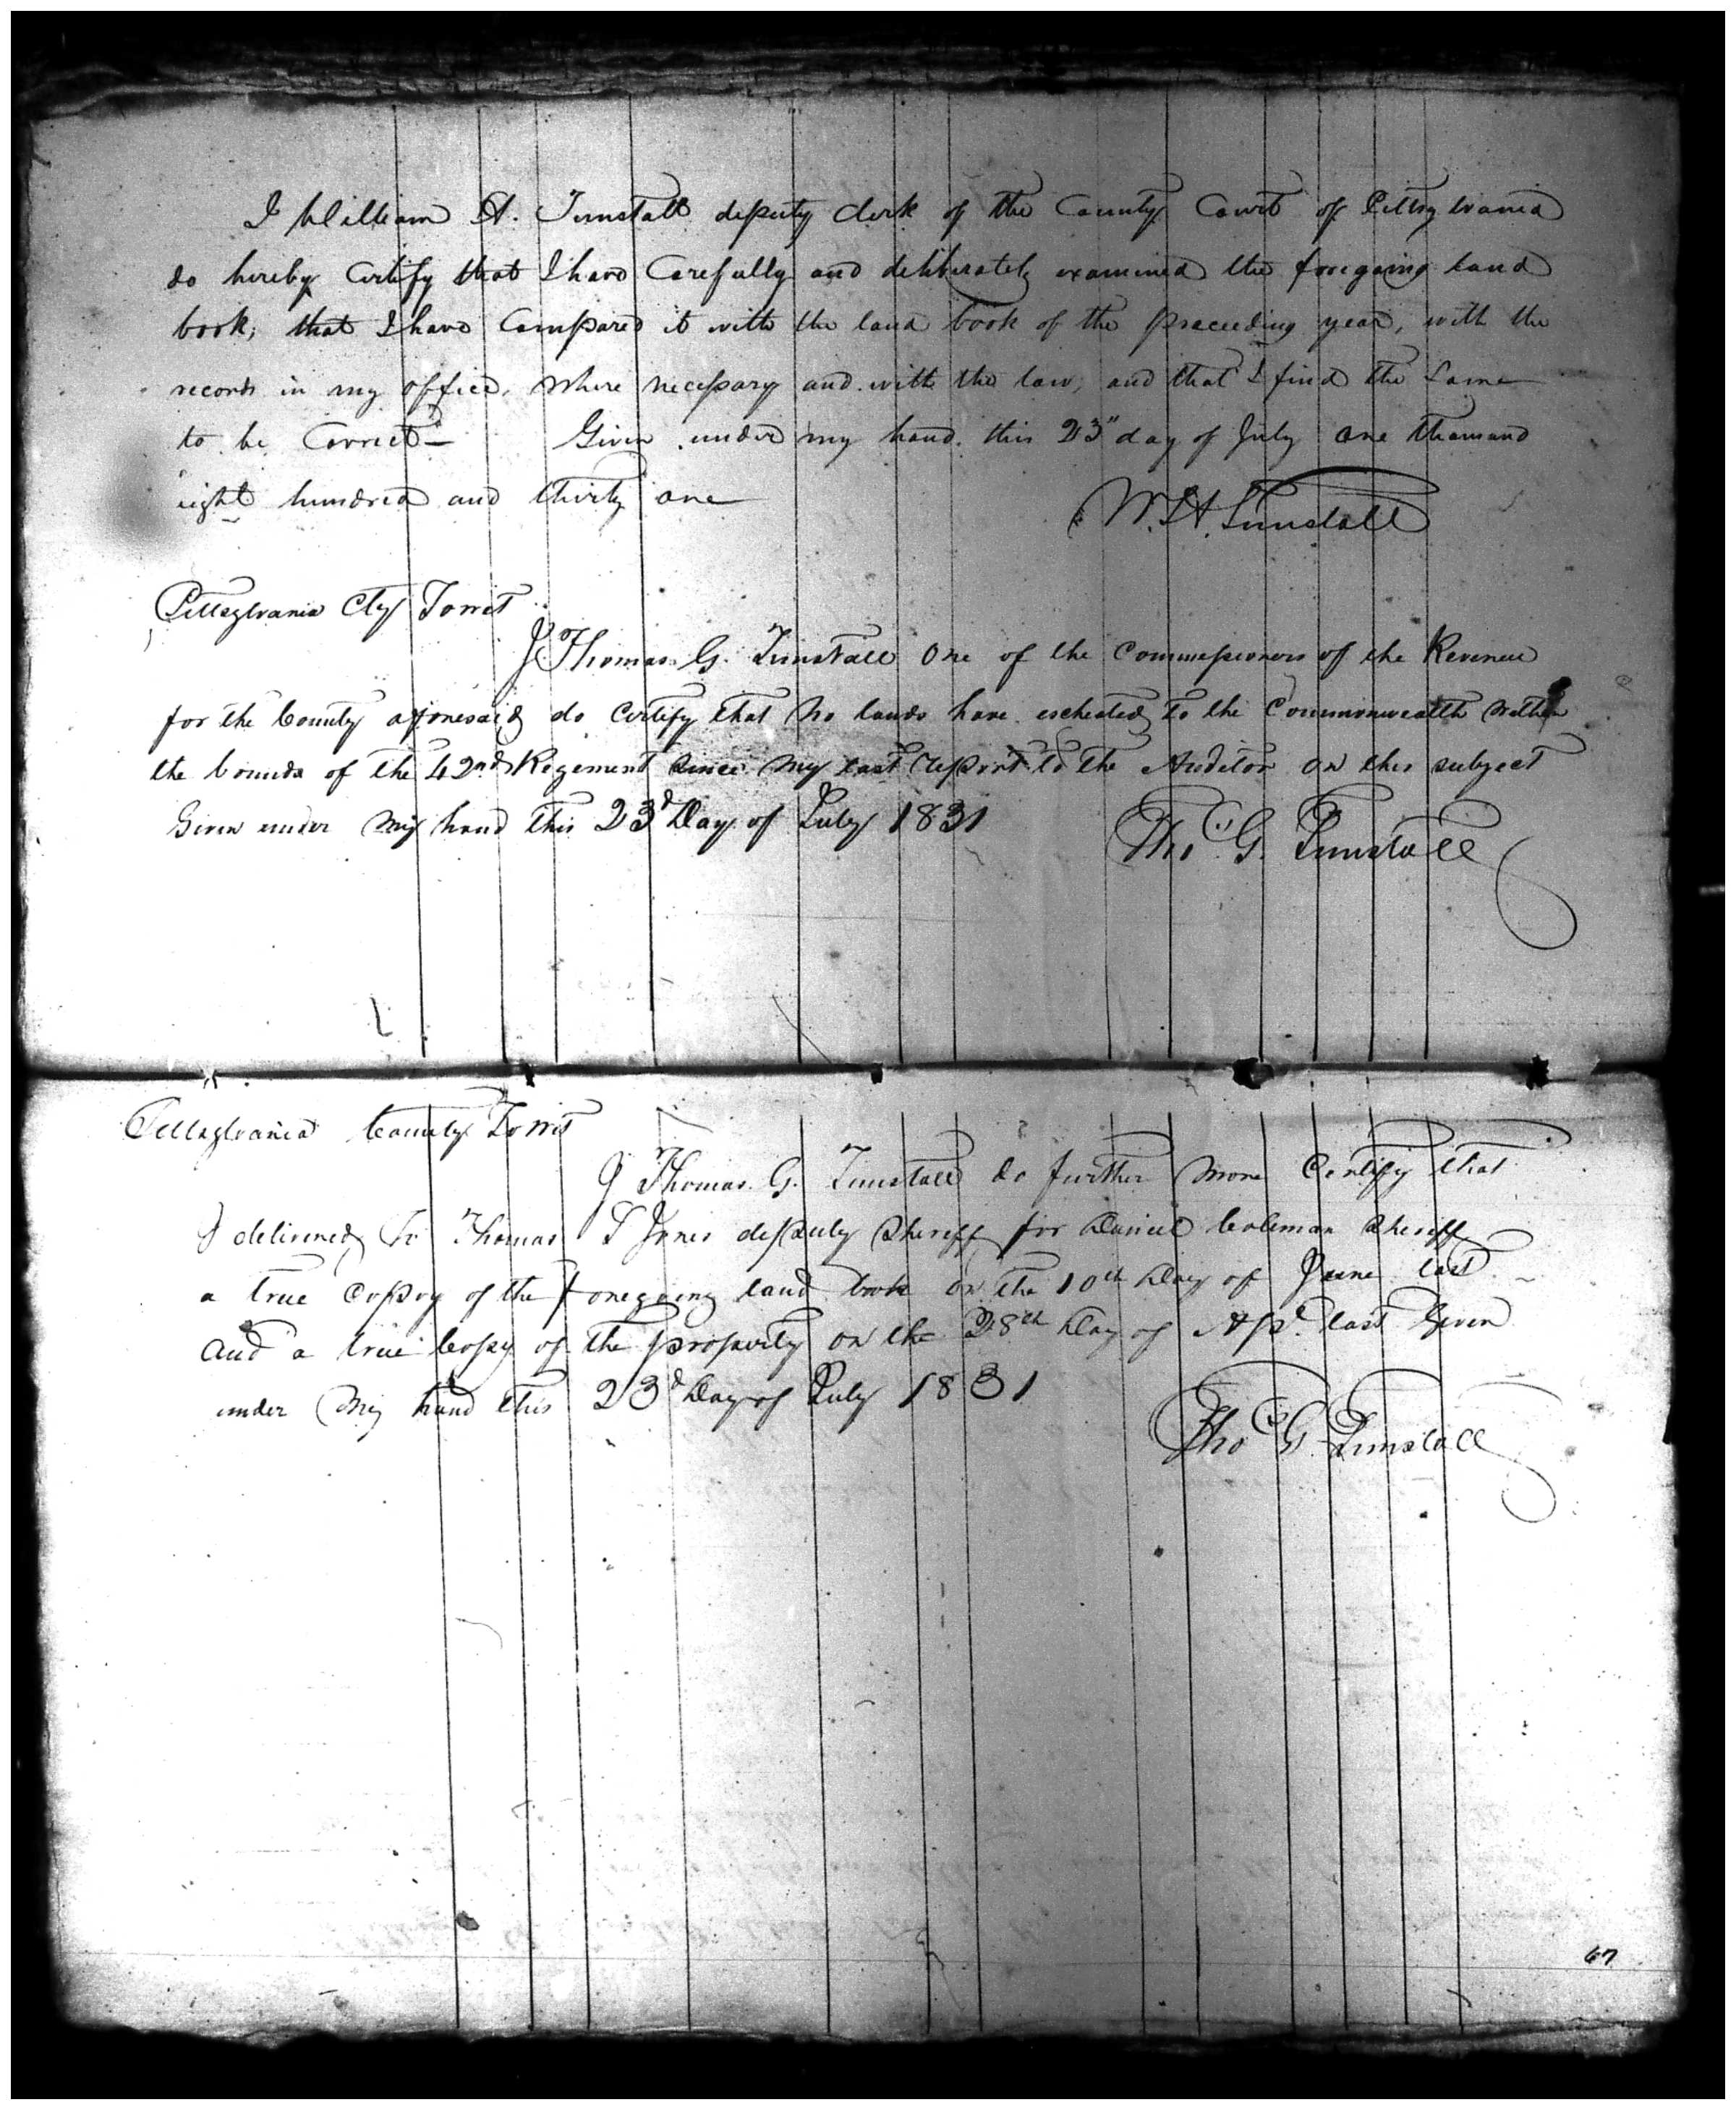 I William H. Tunstall deputy clerk of the County Court of Pittsylvania
do hereby Certify that I have Carefully and deliberately examined the foregoing land
book; that I have Compared it with the land book of the preceeding year, with the
records in my office, where necessary and with the law, and that I find the Same
to be Correct— Given under my hand this 23" day of July one thousand
eight hundred and thirty one
W. H. Tunstall
Pittsylvania Cty Towit
I Thomas G. Tunstall One of the Commissioners of the Revenue
for the County aforesaid do Certify that no lands have escheated to the Commonwealth within
the bounds of the 42nd Regement since my last report to the Auditor on this subject
Given under my hand this 23d Day of July 1831
Tho G. Tunstall
Pittsylvania County Towit
I Thomas G. Tunstall do further more Certify that
I delivered to Thomas Jones deputy Sheriff for Daniel Coleman Sheriff
a true Copy of the foregoing land book on the 10th Day of June last
and a true Copy of the property on the 28th Day of Apl. last Given
under my hand this 23d Day of July 1831
Tho G. Tunstall
67